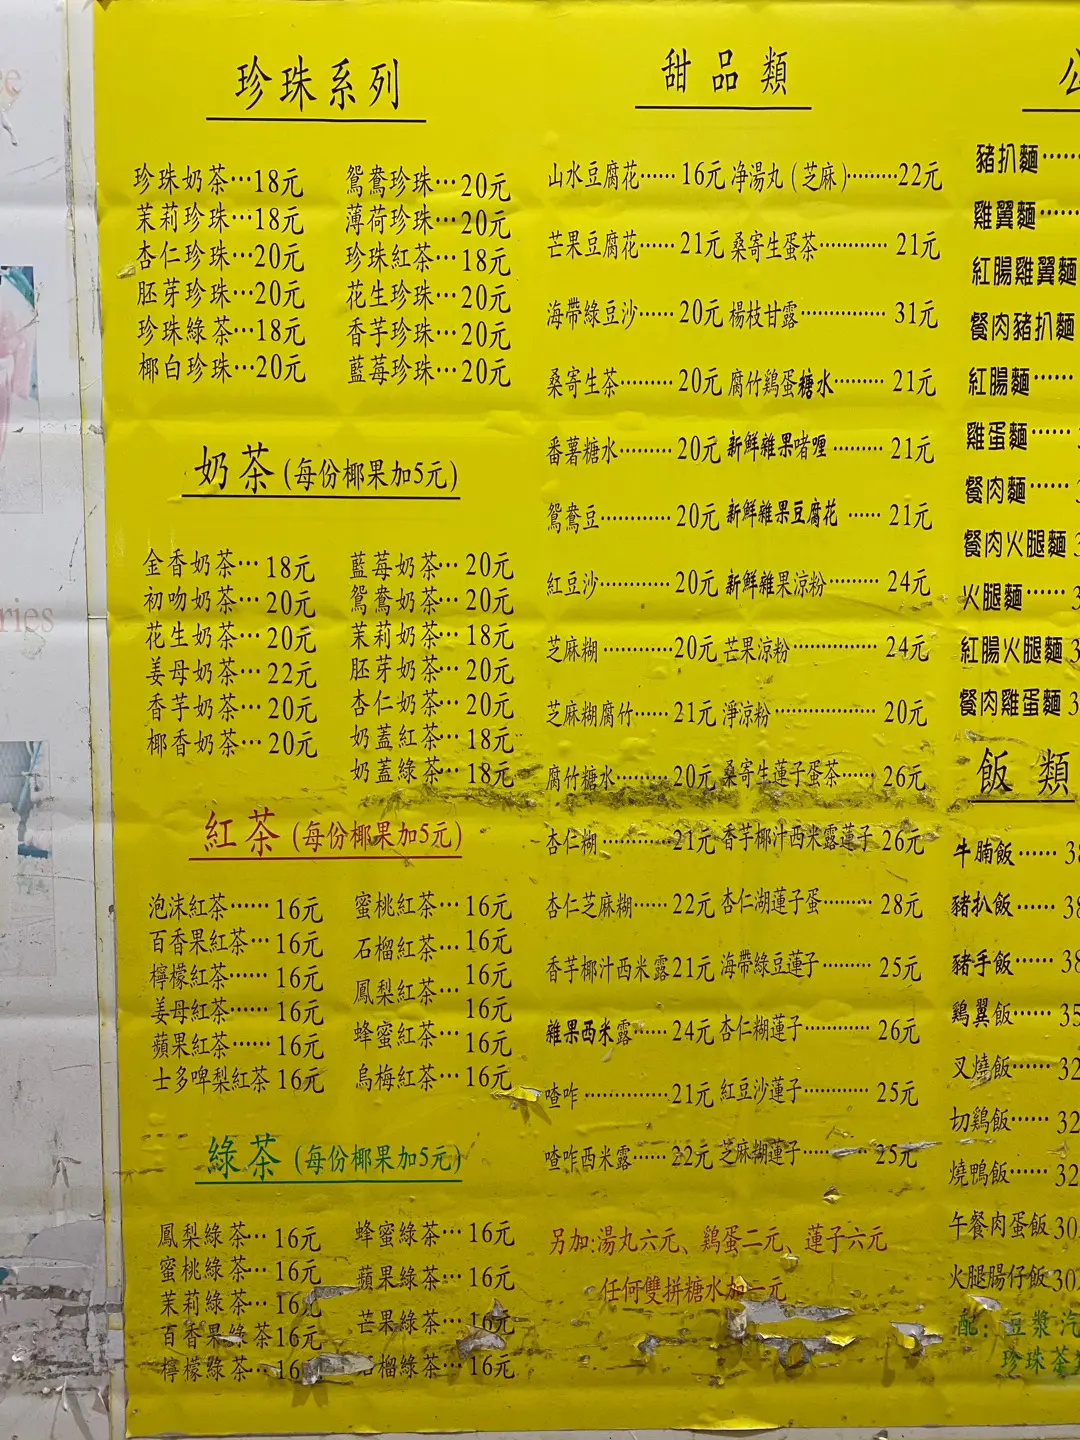 珍珠系列
珍珠奶茶···18元
茉莉珍珠···18元
杏仁珍珠···20元
胚芽珍珠···20元
珍珠綠茶···18元
椰白珍珠···20元
鴛鴦珍珠···20元
薄荷珍珠···20元
珍珠紅茶···18元
花生珍珠···20元
香芋珍珠···20元
藍莓珍珠···20元
奶茶(每份椰果加5元)
金香奶茶···18元
初吻奶茶···20元
花生奶茶···20元
姜母奶茶···22元
香芋奶茶···20元
椰香奶茶···20元
藍莓奶茶···20元
鴛鴦奶茶···20元
茉莉奶茶···18元
胚芽奶茶···20元
杏仁奶茶···20元
奶蓋紅茶···18元
奶蓋綠茶···18元
紅茶(每份椰果加5元)
泡沫紅茶······16元
百香果紅茶···16元
檸檬紅茶······16元
姜母紅茶······16元
蘋果紅茶······16元
士多啤梨紅茶 16元
蜜桃紅茶···16元
石榴紅茶···16元
16元
鳳梨紅茶···
16元
蜂蜜紅茶···16元
烏梅紅茶···16元
綠茶(每份椰果加5元)
鳳梨綠茶···16元
蜜桃綠茶···16元
茉莉綠茶···16元
百香果綠茶16元
檸檬綠茶···16元
蜂蜜綠茶···16元
蘋果綠茶···16元
芒果綠茶···16元
榴綠茶···16元
甜品類
山水豆腐花······16元
芒果豆腐花······21元
海帶綠豆沙······20元
桑寄生茶·········20元
番薯糖水·········20元
鴛鴦豆············20元
紅豆沙············20元
芝麻糊············20元
芝麻糊腐竹······21元
腐竹糖水·········20元
杏仁糊············21元
杏仁芝麻糊······22元
香芋椰汁西米露21元
雜果西米露······24元
喳咋···············21元
喳咋西米露······22元
净湯丸(芝麻)·········22元
桑寄生蛋茶············21元
楊枝甘露···············31元
腐竹鷄蛋糖水·········21元
新鮮雜果啫喱·········21元
新鮮雜果豆腐花······21元
新鮮雜果涼粉·········24元
芒果涼粉···············24元
淨涼粉··················20元
桑寄生蓮子蛋茶······26元
香芋椰汁西米露蓮子 26元
杏仁湖蓮子蛋·········28元
海帶綠豆蓮子·········25元
杏仁糊蓮子············26元
紅豆沙蓮子············25元
芝麻糊蓮子············25元
另加:湯丸六元、鷄蛋二元、蓮子六元
任何雙拼糖水加二元
豬扒麵······
雞翼麵······
紅腸雞翼麵
餐肉豬扒麵
紅腸麵······
雞蛋麵······
餐肉麵······
餐肉火腿麵
火腿麵······
紅腸火腿麵
餐肉雞蛋麵
飯類
牛腩飯······38
豬扒飯······38
豬手飯······38
鷄翼飯······35
叉燒飯······32
切鷄飯······32
燒鴨飯······32
午餐肉蛋飯30
火腿腸仔飯30
配:豆漿汽
珍珠茶